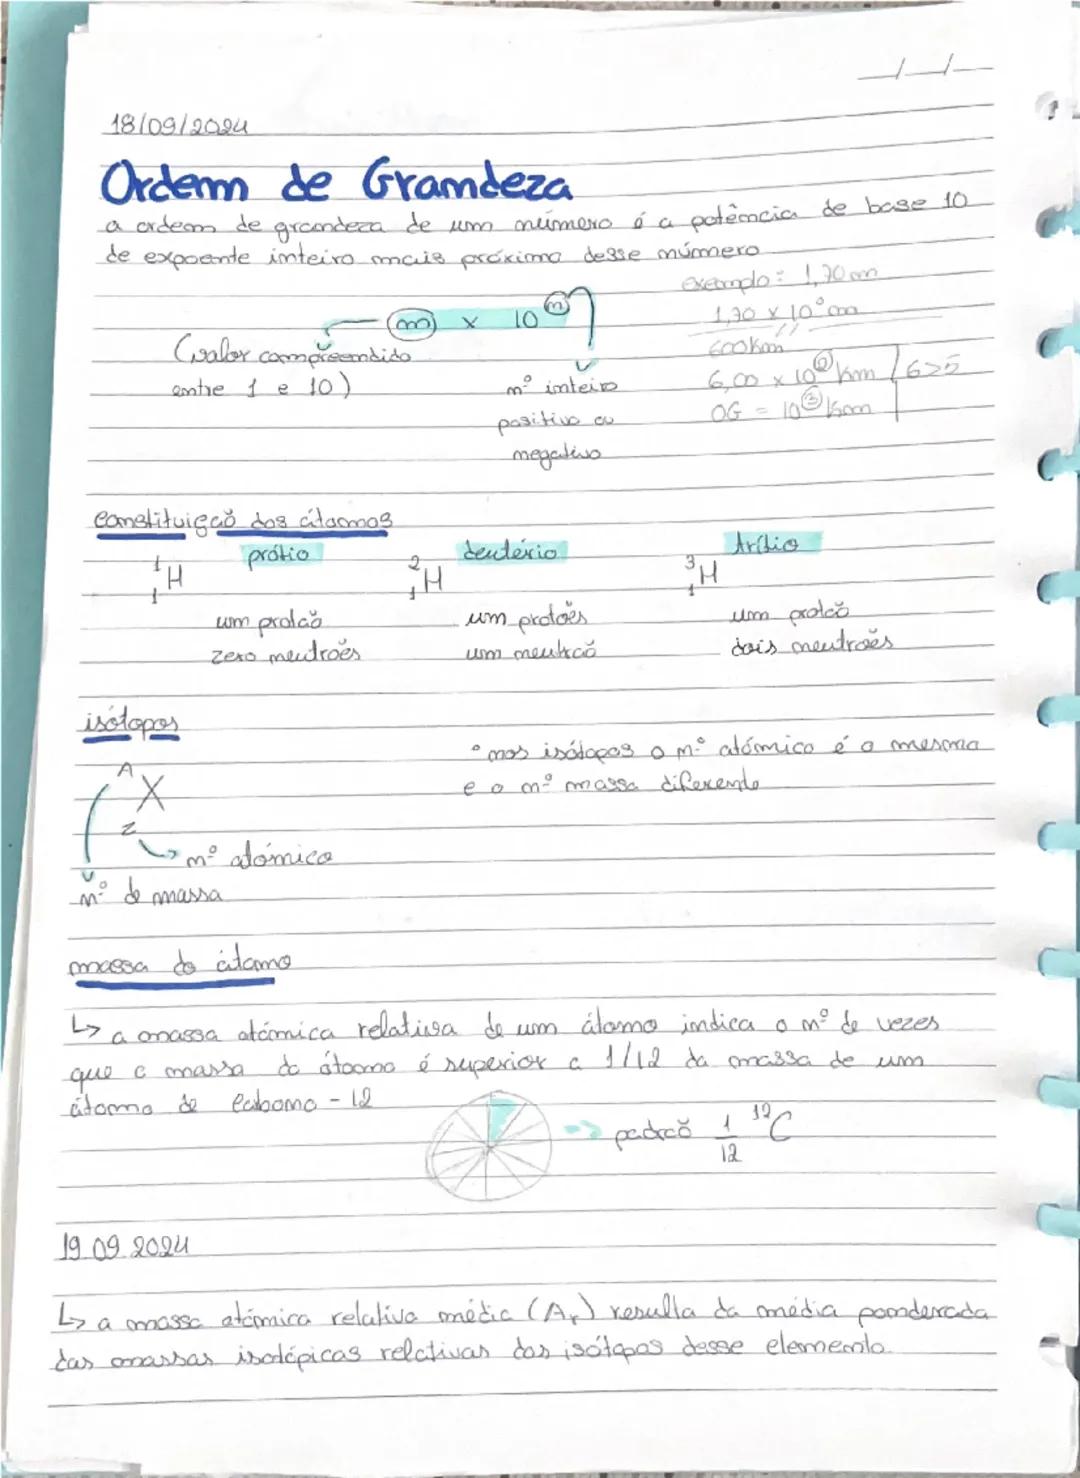 18/09/2024
Ordem de Grandeza
a ordem de grandeza de um número é a potência de base 10
de expoente inteiro mais próximo desse número
exemplo: 1,70 m
1,70 x 10⁰ m
m x 10ⁿ
(valor compreendido
entre 1 e 10)
nº inteiro
positivo ou
negativo
600 km
6,00 x 10² km 6>5
OG = 10³ km
constituição dos átomos
¹₁H prótio
²₁H deutério
³₁H trítio
um protão
zero neutrões
um protões
um neutrão
um protão
dois neutrões
isótopos
• nos isótopos o nº atómico é o mesmo
e o nº massa diferente
A
X
Z
nº atómico
nº de massa
massa do átomo
↳ a massa atómica relativa de um átomo indica o nº de vezes
que a massa do átomo é superior a 1/12 da massa de um
átomo de Cabono - 12
→ padrão 1/12 ¹²C
19.09.2024
↳ a massa atómica relativa média (Ar) resulta da média ponderada
das massas isotópicas relativas dos isótopos desse elemento.